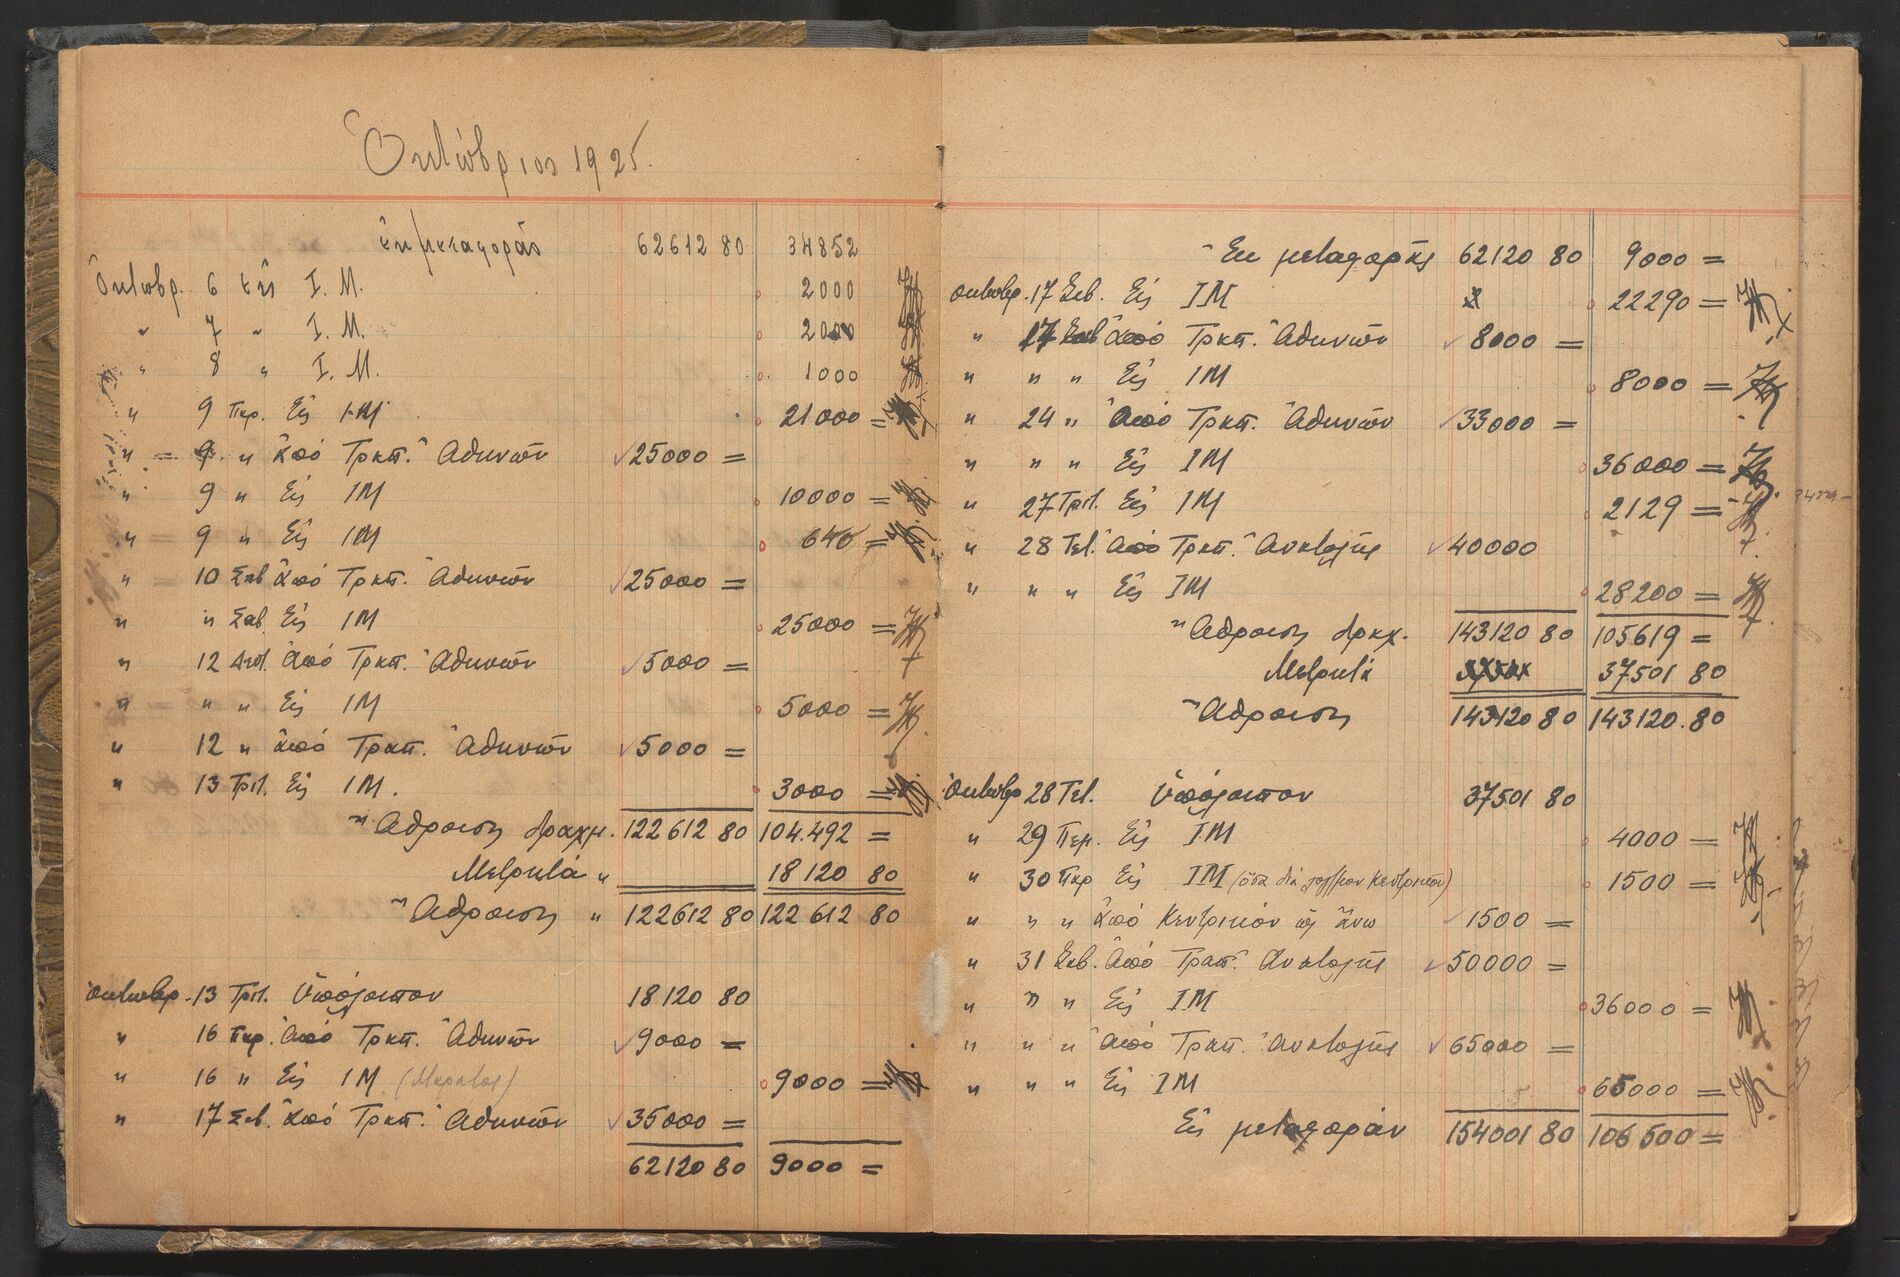 Ὀκτώβριος 1925.
ἐκ μεταφορᾶς 62612 80 34852
Ὀκτωβρ. 6 εἰς Ι. Μ. 2000
" 7 " Ι. Μ. 2000
" 8 " Ι. Μ. 1000
" 9 Παρ. Εἰς Ι.Μ. 21000 =
" = 9 " Ἀπό Τραπ. Ἀθηνῶν 25000 =
" 9 " Εἰς ΙΜ 10000 =
" 9 " Εἰς ΙΜ 640 =
" 10 Σαβ Ἀπό Τραπ. Ἀθηνῶν 25000 =
" " Σαβ. Εἰς ΙΜ 25000 =
" 12 Δευτ. Ἀπό Τραπ. Ἀθηνῶν 5000 =
" " " Εἰς ΙΜ 5000 =
" 12 " Ἀπό Τραπ. Ἀθηνῶν 5000 =
" 13 Τρίτ. Εἰς ΙΜ. 3000 =
Ἄθροισις δραχμ. 122612 80 104.492 =
Μετρητά " 18120 80
Ἄθροισις " 122612 80 122612 80
Ὀκτωβρ. 13 Τρίτ. Ὑπόλοιπον 18120 80
" 16 Παρ. Ἀπό Τραπ. Ἀθηνῶν 9000 =
" 16 " Εἰς ΙΜ 9000 =
" 17 Σαβ. Ἀπό Τραπ. Ἀθηνῶν 35000 =
62120 80 9000 =
Ἐκ μεταφορᾶς 62120 80 9000 =
Ὀκτωβρ. 17 Σαβ. Εἰς ΙΜ 22290 =
" 17 Σαβ Ἀπό Τραπ. Ἀθηνῶν 8000 =
" " " Εἰς ΙΜ 8000 =
" 24 " Ἀπό Τραπ. Ἀθηνῶν 33000 =
" " " Εἰς ΙΜ 36000 =
" 27 Τρίτ. Εἰς ΙΜ 2129 =
" 28 Τετ. Ἀπό Τραπ. Ἀνατολῆς 40000
" " " Εἰς ΙΜ 28200 =
Ἄθροισις δραχ. 143120 80 105619 =
Μετρητά 37501 80
Ἄθροισις 143120 80 143120.80
Ὀκτωβρ 28 Τετ. Ὑπόλοιπον 37501 80
" 29 Πεμ. Εἰς ΙΜ 4000 =
" 30 Παρ Εἰς ΙΜ 1500 =
" " " Ἀπό Κεντρικόν ὡς ἄνω 1500 =
" 31 Σαβ. Ἀπό Τραπ. Ἀνατολῆς 50000 =
" " " Εἰς ΙΜ 36000 =
" " " Ἀπό Τραπ. Ἀνατολῆς 65000 =
" " " Εἰς ΙΜ 65000 =
Εἰς μεταφοράν 154001 80 106500 =